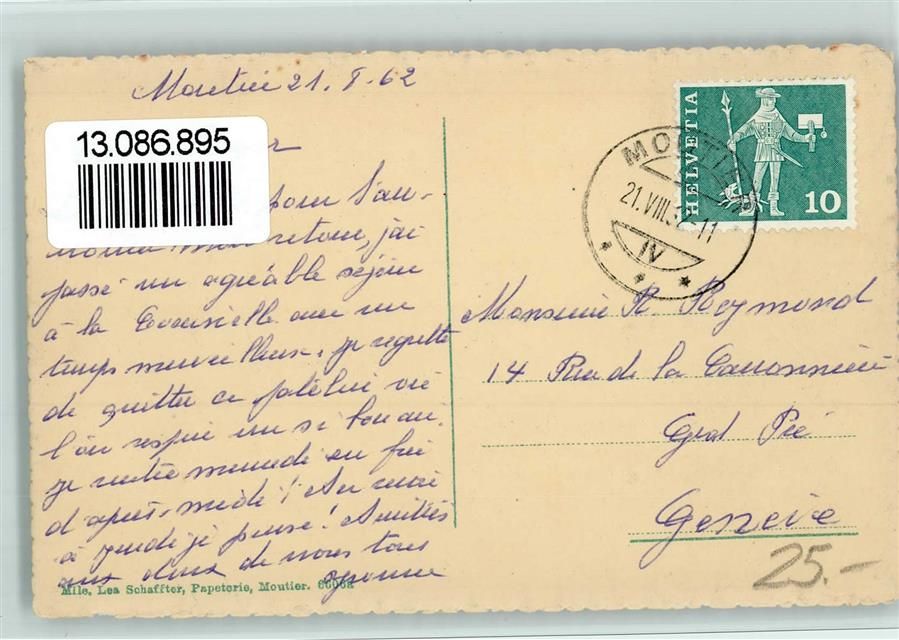 Moutier 21. 8. 62
13.086.895
pour l'an-
retour, j'ai
passé un agréable séjour
à la avec un
temps merveilleux, je regrette
de quitter ce joli lieu où
l'on respire un si bon air.
je rentre en fin
d'après-midi! Au revoir
à je pense! Amitiés
aux deux de nous tous
Yvonne
Mlle. Lea Schaffter, Papeterie, Moutier. 6606a
HELVETIA
10
MOUTIER
21.VIII.62-11
IV
Monsieur R. Reymond
14 Rue de la Canonnière
Grd Pré
Genève
25.-